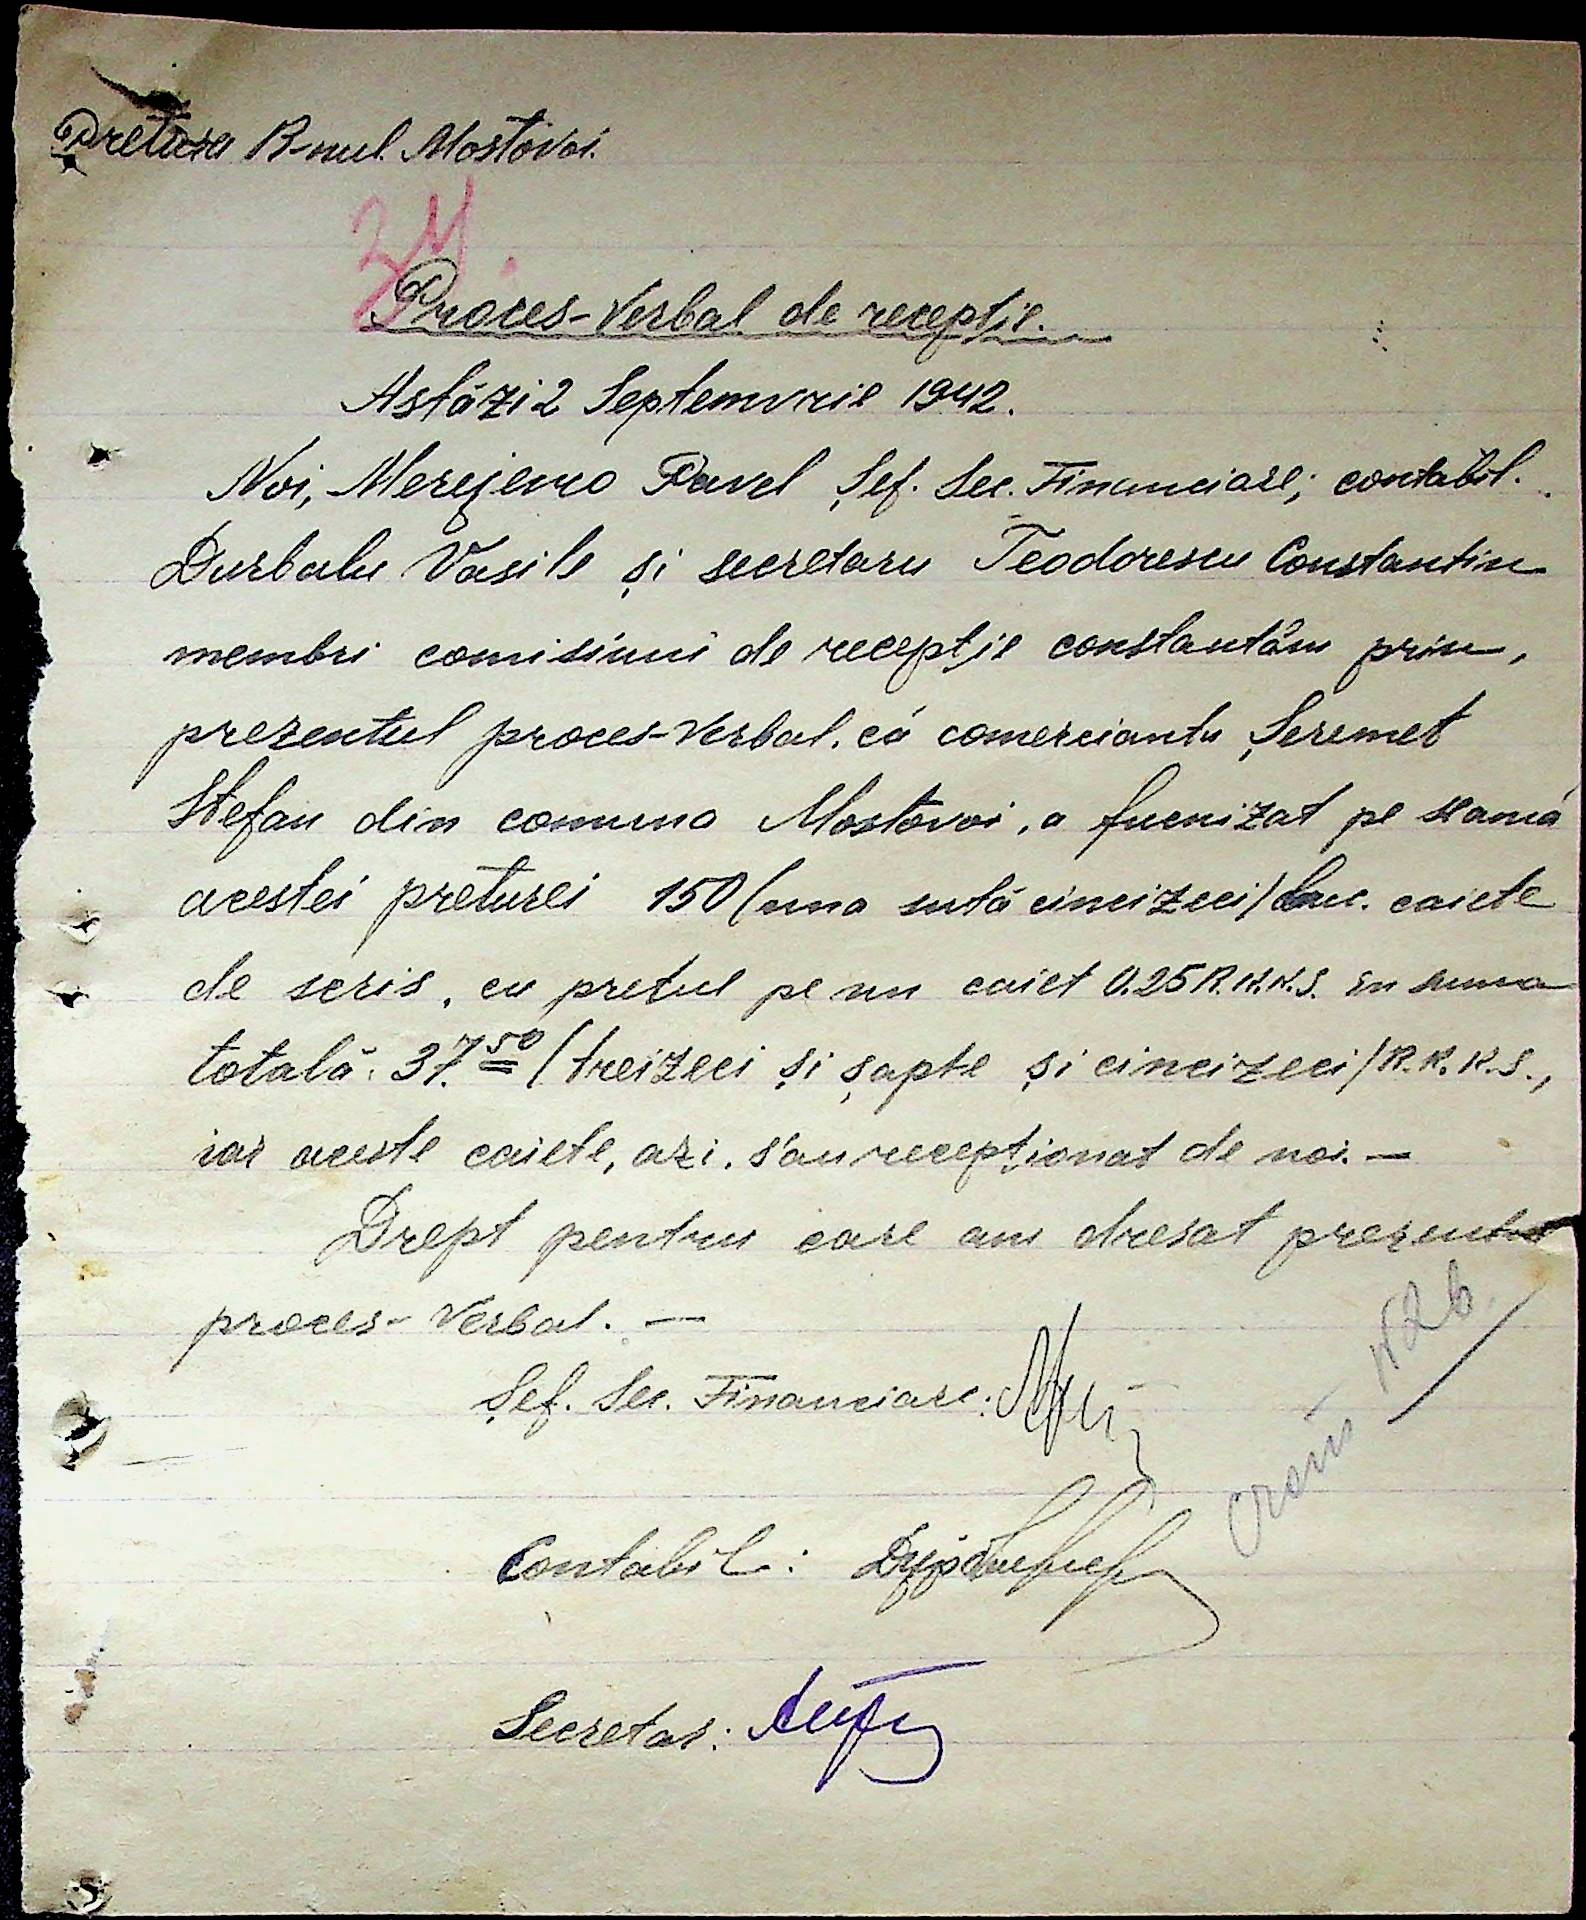 Pretura R-nul. Mostovoi.
34.
Proces-Verbal de recepție.
Astăzi 2 Septemvrie 1942.
Noi, Merejenco Pavel Șef. Sec. Financiare; contabil.
Durbalu Vasile și secretaru Teodorescu Constantin
membri comisiuni de recepție constantăm prin,
prezentul proces-verbal, că comerciantu Șeremet
Stefan din comuna Mostovoi, a fuenizat pe seamă
acestei preturei 150 (una sută cincizeci) buc. caiete
de scris, cu pretul pe un caiet 0.25 R.K.K.S. în suma
totală: 37.50 (treizeci și șapte și cincizeci) R.K.K.S.,
iar aceste caiete, azi, s'au recepționat de noi. —
Drept pentru care am dresat prezentul
proces-Verbal. —
Șef. Sec. Financiare:
Contabil:
Secretar: